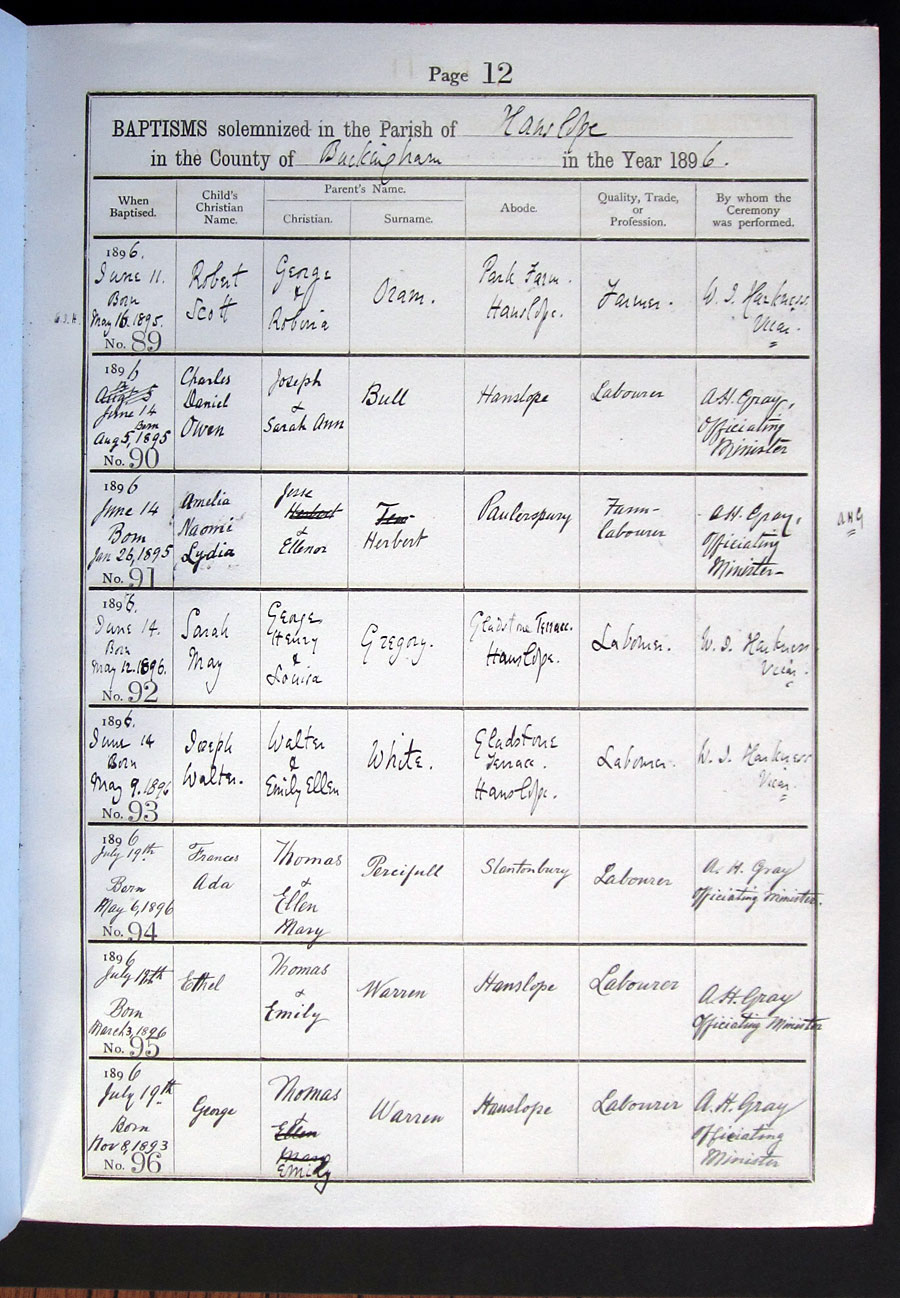 Page 12
BAPTISMS solemnized in the Parish of Hanslope
in the County of Buckingham in the Year 1896.
When Baptised.
Child's Christian Name.
Parent's Name.
Christian.
Surname.
Abode.
Quality, Trade, or Profession.
By whom the Ceremony was performed.
1896.
June 11.
Born
May 16. 1895.
No. 89
Robert
Scott
George
&
Robina
Oram.
Park Farm.
Hanslope.
Farmer.
W. J. Harkness
Vicar.
1896
Aug 5
June 14
Born
Aug 5, 1895
No. 90
Charles
Daniel
Owen
Joseph
&
Sarah Ann
Bull
Hanslope
Labourer
A.H. Gray,
Officiating
Minister
1896
June 14
Born
Jan 26, 1895
No. 91
Amelia
Naomi
Lydia
Jesse
Herbert
&
Ellenor
Herbert
Paulerspury
Farm-
labourer
A.H. Gray,
Officiating
Minister
AHG
1896.
June 14.
Born
May 12. 1896.
No. 92
Sarah
May
George
Henry
&
Louisa
Gregory.
Gladstone Terrace.
Hanslope.
Labourer.
W. J. Harkness
Vicar.
1896.
June 14
Born
May 9. 1896
No. 93
Joseph
Walter.
Walter
&
Emily Ellen
White.
Gladstone
Terrace.
Hanslope.
Labourer.
W. J. Harkness
Vicar.
1896
July 19th
Born
May 6, 1896
No. 94
Frances
Ada
Thomas
&
Ellen
Mary
Percifull
Stantonbury
Labourer
A. H. Gray
Officiating Minister.
1896
July 19th
Born
March 3, 1896
No. 95
Ethel
Thomas
&
Emily
Warren
Hanslope
Labourer
A.H. Gray
Officiating Minister
1896
July 19th
Born
Nov 8, 1893
No. 96
George
Thomas
&
Ellen
Mary
Emily
Warren
Hanslope
Labourer
A.H. Gray
Officiating
Minister